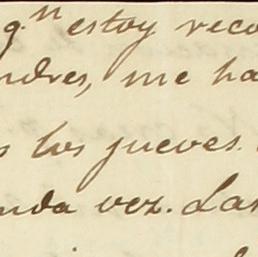 q.n estoy reco
ndres, me ha
s los jueves.
nda vez. Las